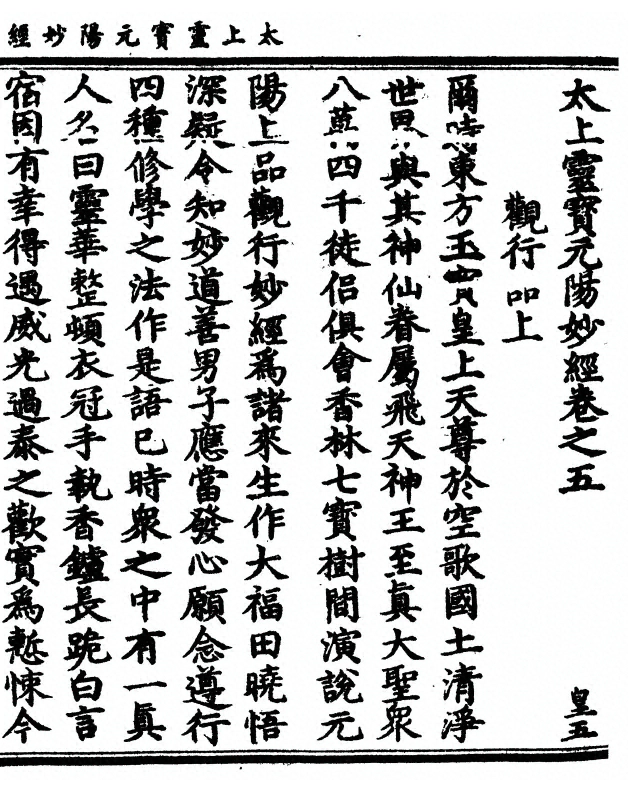 太上靈寶元陽妙經
太上靈寶元陽妙經卷之五
皇五
觀行品上
爾時東方玉寶皇上天尊於空歌國土清淨
世界與其神仙眷屬飛天神王至眞大聖衆
八萬四千徒侶俱會香林七寶樹間演說元
陽上品觀行妙經爲諸來生作大福田曉悟
深疑令知妙道善男子應當發心願念遵行
四種修學之法作是語已時衆之中有一眞
人名曰靈華整頓衣冠手執香鑪長跪白言
宿因有幸得遇威光過泰之歡實爲慙悚今